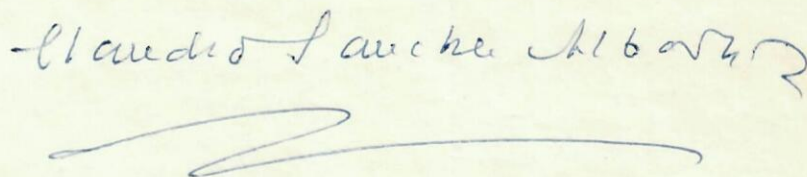 Claudio Sanchez Albornoz